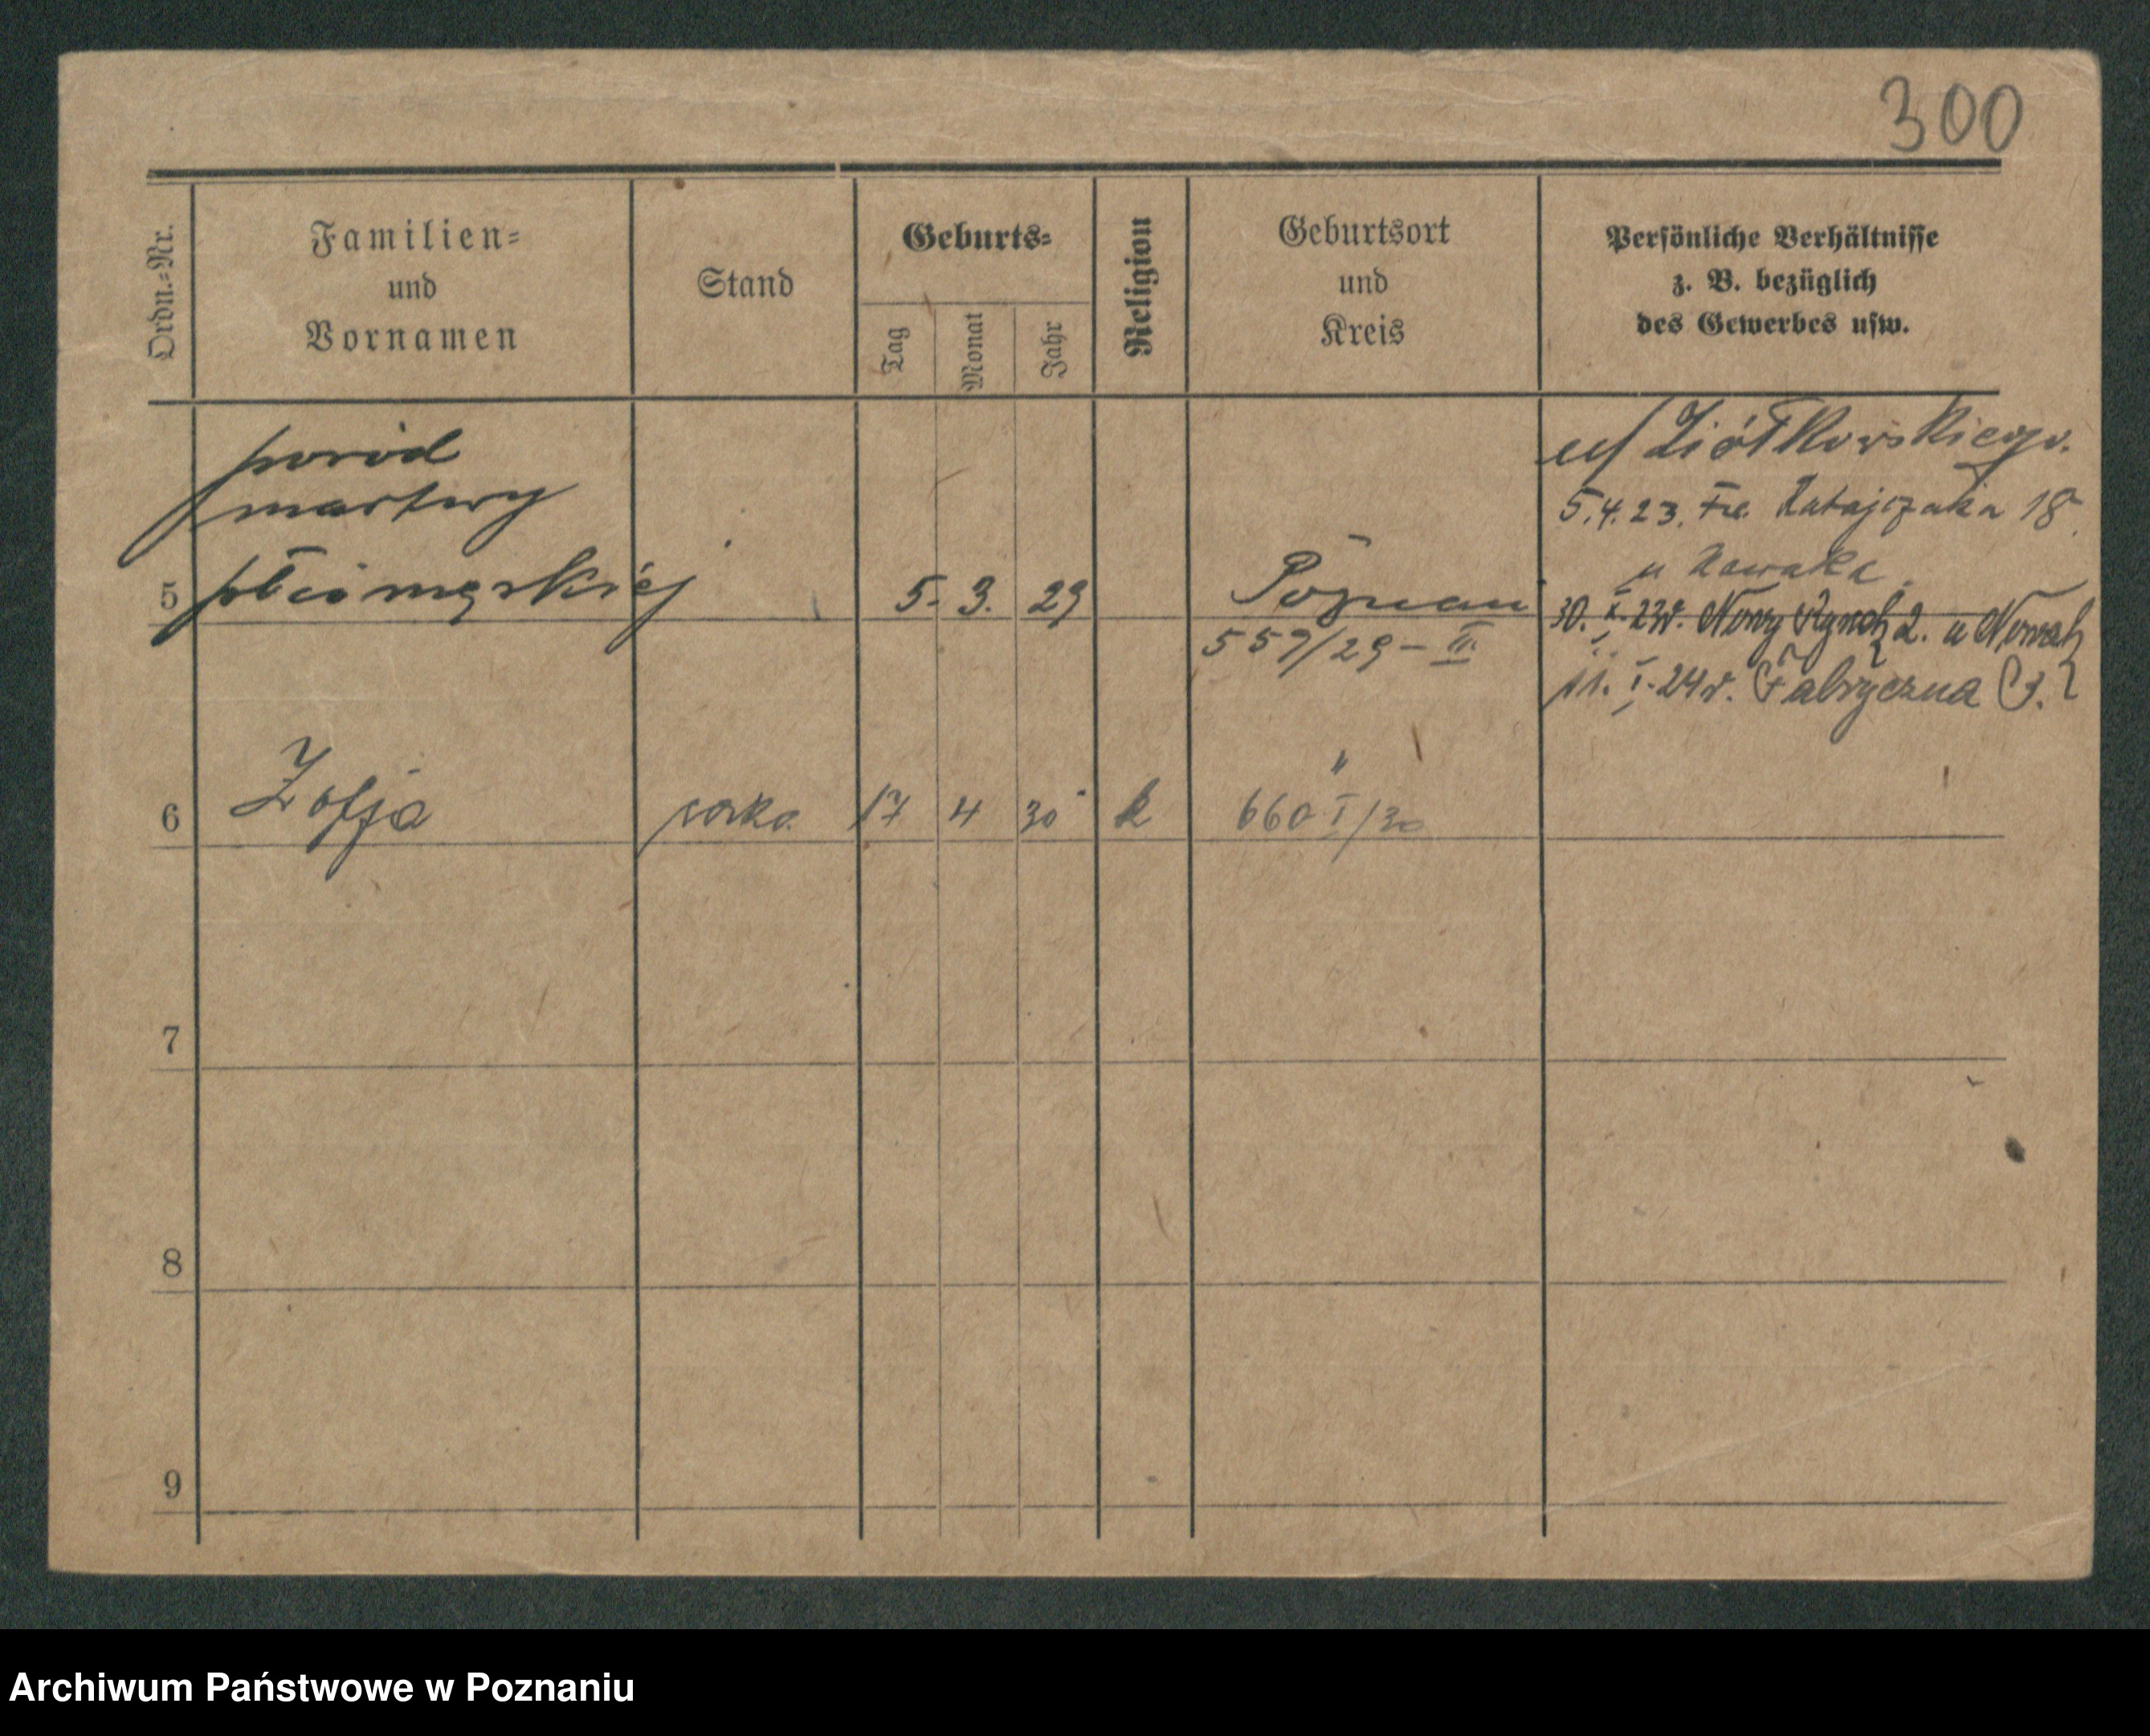 300
Ordn.=Nr.
Familien=
und
Vornamen
Stand
Geburts=
Tag
Monat
Jahr
Religion
Geburtsort
und
Kreis
Persönliche Verhältnisse
z. B. bezüglich
des Gewerbes usw.
u/ Ziółkowskiego.
5.4.23. Fr. Ratajczaka 18
u Nowaka
30. X. 23r. Nowy Rynek 2. u Nowak
11. I. 24r. Fabryczna
poród
martwy
5 płci męskiej 5. 3. 29 Poznań
559/29 – II
6 Zofja córka 17 4 30 k "
660 I/30
7
8
9
Archiwum Państwowe w Poznaniu